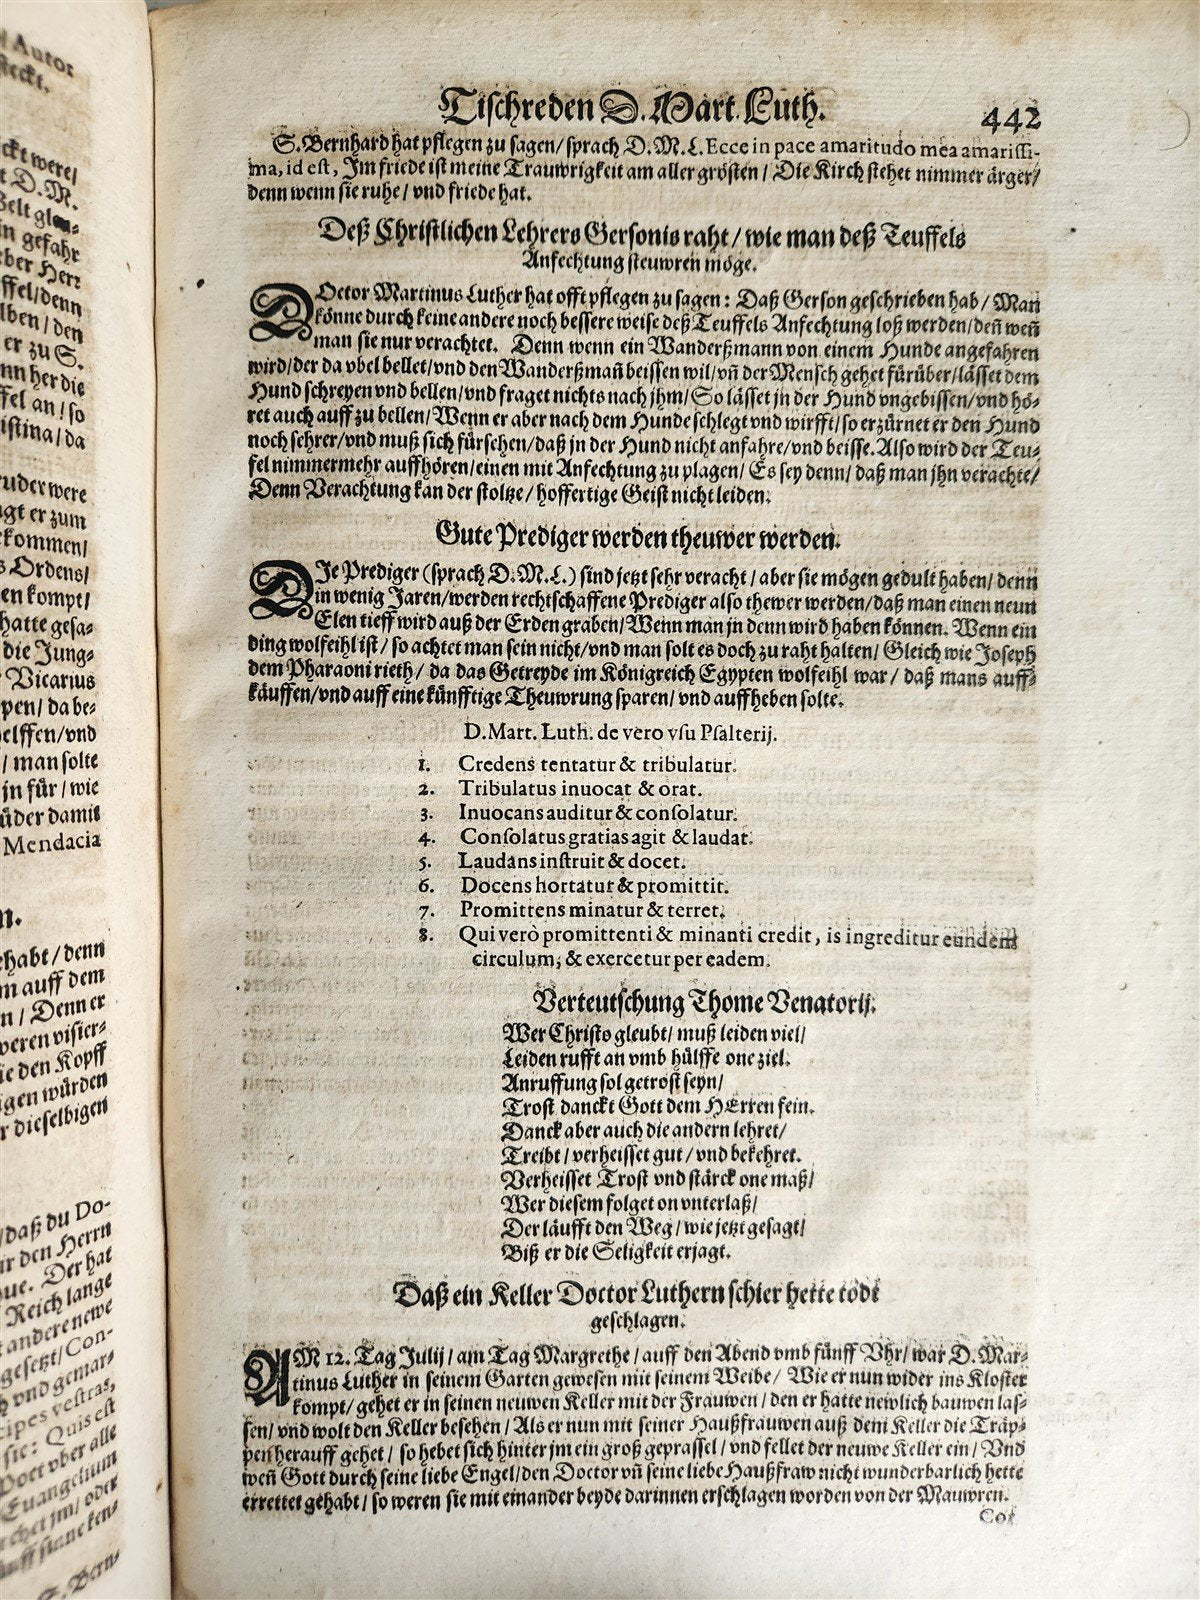 Autor
steckt.
ckt were/
t D. M.
Welt glau-
in gefahr
ber Herz
ffel/denn
lben/den
er zu S.
nn her die
fel an/so
istina/da
uder were
agt er zum
kommen/
s Ordens/
en kompt/
hatte gesa-
die Jung-
Vicarius
pen/da be-
elffen/vnd
/man solte
jn für/wie
üder damit
Mendacia
n.
ehabt/denn
m auff dem
n/Denn er
weren visier-
ie den Kopff
igen würden
r dieselbigen
/daß du Do-
ir den Herrn
ue. Der hat
Reich lange
andere newe
gesetzt/Con-
vnd gemar-
cipes vestras,
sie: Quis est
Poet vber alle
Euangelium
chet jm/oder
S. Bern-
Tischreden D. Mart. Luth. 442
S. Bernhard hat pflegen zu sagen/sprach D. M. L. Ecce in pace amaritudo mea amarissi-
ma, id est, Jm friede ist meine Trauwrigkeit am aller grösten/Die Kirch stehet nimmer ärger/
denn wenn sie ruhe/vnd friede hat.
Deß Christlichen Lehrers Gersonis raht/wie man deß Teuffels
Anfechtung steuwren möge.
DOctor Martinus Luther hat offt pflegen zu sagen: Daß Gerson geschrieben hab/Man
könne durch keine andere noch bessere weise deß Teuffels Anfechtung loß werden/deñ weñ
man sie nur verachtet. Denn wenn ein Wanderßmann von einem Hunde angefahren
wird/der da vbel bellet/vnd den Wanderßmañ beissen wil/vñ der Mensch gehet fürüber/lässet dem
Hund schreyen vnd bellen/vnd fraget nichts nach jhm/So lässet jn der Hund vngebissen/vnd hö-
ret auch auff zu bellen/Wenn er aber nach dem Hunde schlegt vnd wirfft/so erzürnet er den Hund
noch sehrer/vnd muß sich fürsehen/daß jn der Hund nicht anfahre/vnd beisse. Also wird der Teu-
fel nimmermehr auffhören/einen mit Anfechtung zu plagen/Es sey denn/daß man jhn verachte/
Denn Verachtung kan der stoltze/hoffertige Geist nicht leiden.
Gute Prediger werden theuwer werden.
DJe Prediger (sprach D. M. L.) sind jetzt sehr veracht/aber sie mögen gedult haben/denn
in wenig Jaren/werden rechtschaffene Prediger also thewer werden/daß man einen neun
Elen tieff wird auß der Erden graben/Wenn man jn denn wird haben können. Wenn ein
ding wolfeihl ist/so achtet man sein nicht/vnd man solt es doch zu raht halten/Gleich wie Joseph
dem Pharaoni rieth/da das Getreyde im Königreich Egypten wolfeihl war/daß mans auff-
käuffen/vnd auff eine künfftige Theuwrung sparen/vnd auffheben solte.
D. Mart. Luth. de vero vsu Psalterij.
1. Credens tentatur & tribulatur.
2. Tribulatus inuocat & orat.
3. Inuocans auditur & consolatur.
4. Consolatus gratias agit & laudat.
5. Laudans instruit & docet.
6. Docens hortatur & promittit.
7. Promittens minatur & terret.
8. Qui verò promittenti & minanti credit, is ingreditur eundem
circulum, & exercetur per eadem.
Verteutschung Thome Venatorij.
Wer Christo gleubt/muß leiden viel/
Leiden rufft an vmb hülffe one ziel.
Anruffung sol getrost seyn/
Trost danckt Gott dem HErren fein.
Danck aber auch die andern lehret/
Treibt/verheisset gut/vnd bekehret.
Verheisset Trost vnd stärck one maß/
Wer diesem folget on vnterlaß/
Der läufft den Weg/wie jetzt gesagt/
Biß er die Seligkeit erjagt.
Daß ein Keller Doctor Luthern schier hette todt
geschlagen.
AM 12. Tag Julij/am Tag Margrethe/auff den Abend vmb fünff Vhr/war D. Mar-
tinus Luther in seinem Garten gewesen mit seinem Weibe/Wie er nun wider ins Kloster
kompt/gehet er in seinen neuwen Keller mit der Frauwen/den er hatte newlich bauwen las-
sen/vnd wolt den Keller besehen/Als er nun mit seiner Haußfrauwen auß dem Keller die Träp-
pen herauff gehet/so hebet sich hinter jm ein groß geprassel/vnd fellet der neuwe Keller ein/Vnd
weñ Gott durch seine liebe Engel/den Doctor vñ seine liebe Haußfraw nicht wunderbarlich hette
errettet gehabt/so weren sie mit einander beyde darinnen erschlagen worden von der Mauwren.
Cor